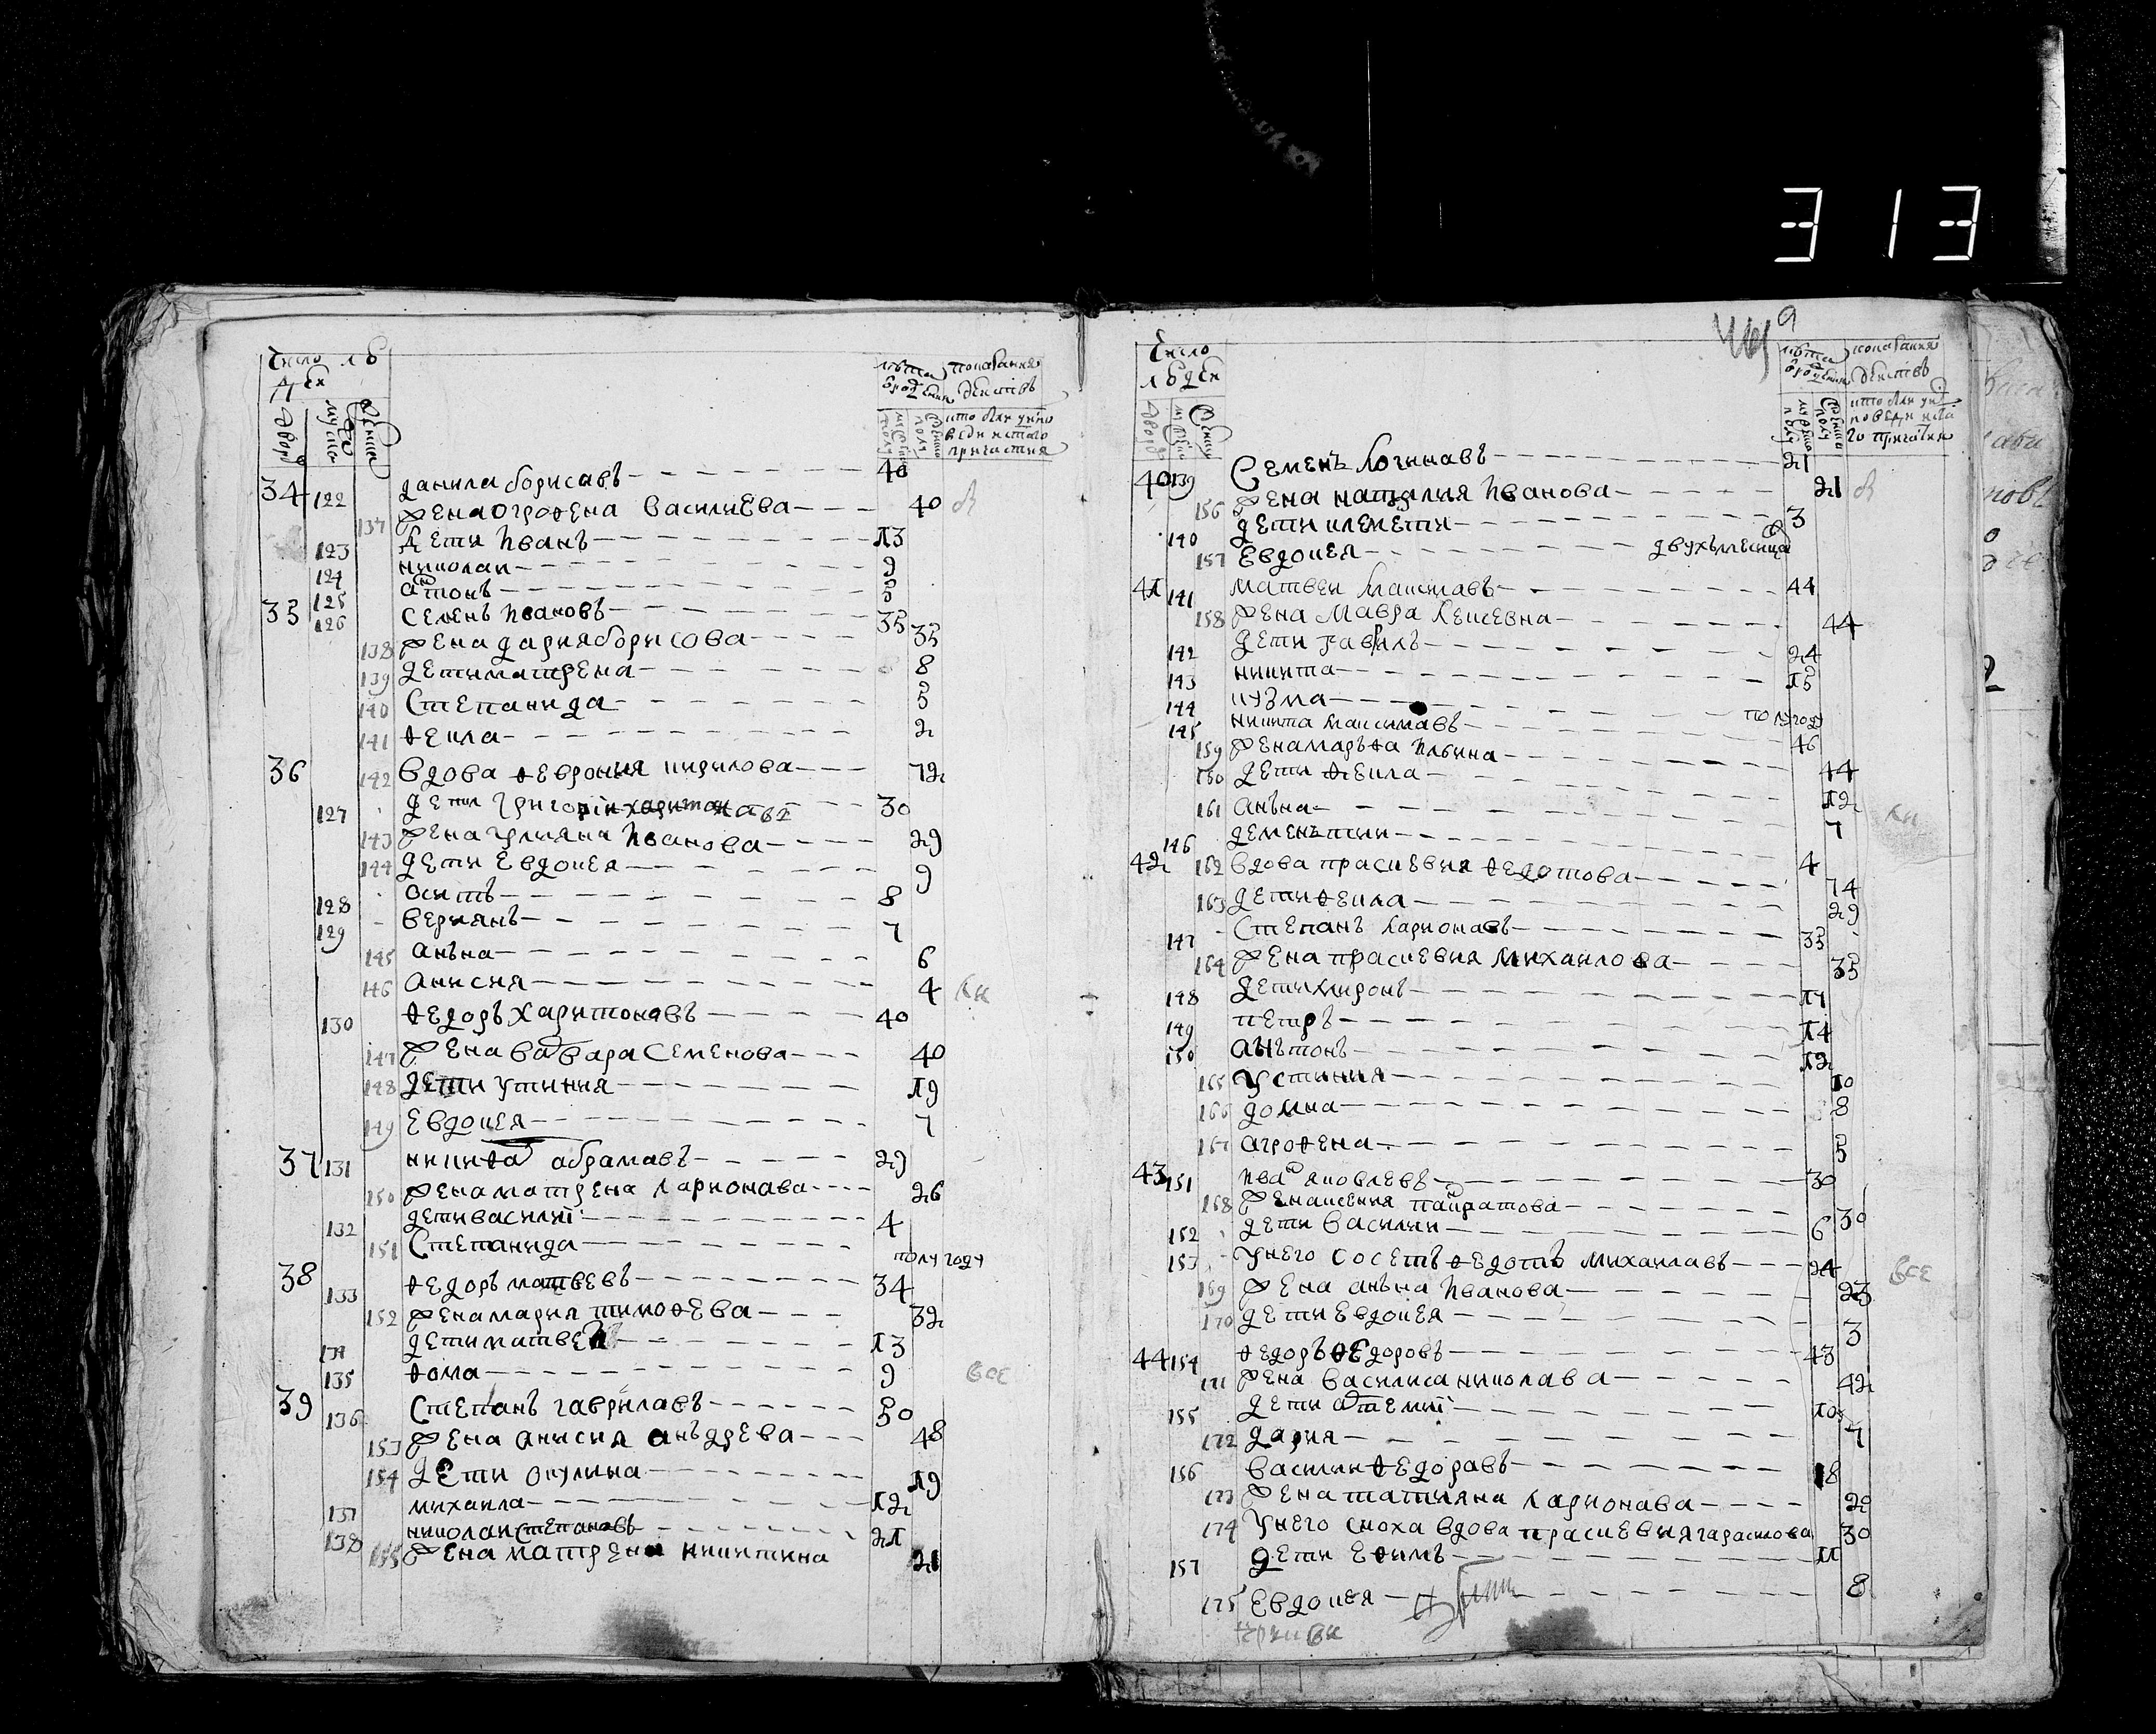 313
Число лю
дей
лета
от рождения
показание
действъ
34 122 данила борисавъ 40
137 жена огрофена василиева 40
123 дети иванъ 13
124 николаи 9
125 антонъ 5
35 126 семенъ ивановъ 35
138 жена дария борисова 35
139 дети матрена 8
140 степанида 5
141 фекла 2
36 142 вдова феврония кирилова 72
127 дети григорiи харитонавъ 30
143 жена улияна иванова 29
144 дети евдокея 9
128 осипъ 8
129 вериянъ 7
145 анъна 6
146 анисия 4
130 федоръ харитонавъ 40
147 жена варвара семенова 40
148 дети устиния 19
149 евдокея 7
37 131 никифа абрамавъ 29
150 жена матрена ларионава 26
132 дети василиi 4
151 степанида полугоду
38 133 федоръ матвевъ 34
152 жена мария тимофева 32
134 дети матвеи 13
135 фома 9 все
39 136 степанъ гаврилавъ 50
153 жена анисия анъдрева 48
154 дети окулина 19
137 михаила 12
138 николаи степановъ 21
155 жена матрена никитина 21
9
Число
людей
лета
от рождения
показания
действъ
40 139 семенъ логинавъ 21
156 жена наталия иванова 21
140 дети климети 3
157 евдокея двухъ месяца
41 141 матвеи макимавъ 44
158 жена мавра алексевна 44
142 дети гаврилъ 24
143 никита 15
144 кузма полугоду
145 никита максимавъ 46
159 жена маръфа илина 44
160 дети фекла 12
161 анъна 7
146 дементии 4
42 162 вдова праскевия федотова 74
163 дети фекла 29
147 степанъ ларионавъ 35
164 жена праскевия михаилова 35
148 дети миронъ 17
149 петръ 14
150 анътонъ 12
165 устиния 10
166 домна 8
167 агрофена 5
43 151 иванъ яковлевъ 30
168 жена ксения панкратова 30
152 дети василии 6
153 унего соседъ федотъ михаилавъ 24 все
169 жена анъна иванова 23
170 дети евдокея 3
44 154 федоръ федоровъ 43
171 жена василиса николава 42
155 дети артемиi 10
172 дария 7
156 василии федоравъ 18
173 жена татияна ларионава 20
174 унего сноха вдова праскевия гарасимова 30
157 дети ефимъ 11
175 евдокея 8